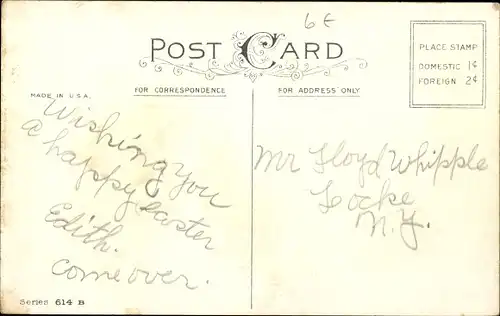 6€
POST CARD
PLACE STAMP
DOMESTIC 1¢
FOREIGN 2¢
MADE IN U.S.A.
FOR CORRESPONDENCE
FOR ADDRESS ONLY
Wishing you
a happy easter
Edith.
come over.
Mr Floyd Whipple
Locke
N.Y.
Series 614 B